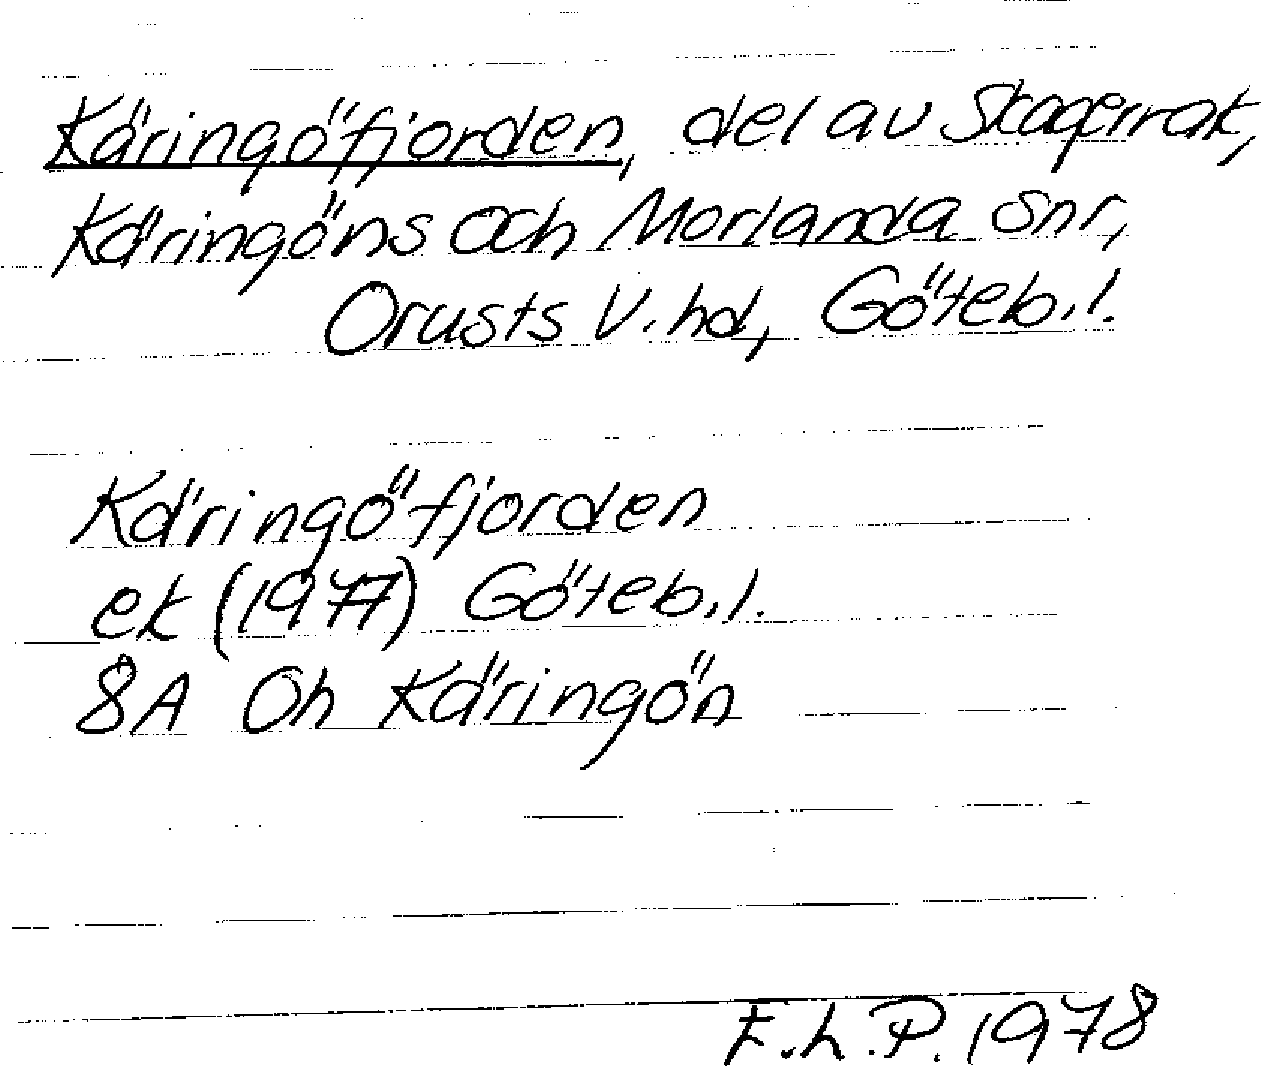 Käringöfjorden, del av Skagerrak,
Käringöns och Morlanda snr,
Orusts V. hd, Göteb. l.
Käringöfjorden
ek (1977) Göteb. l.
8A 0h Käringön
F.L.P. 1978